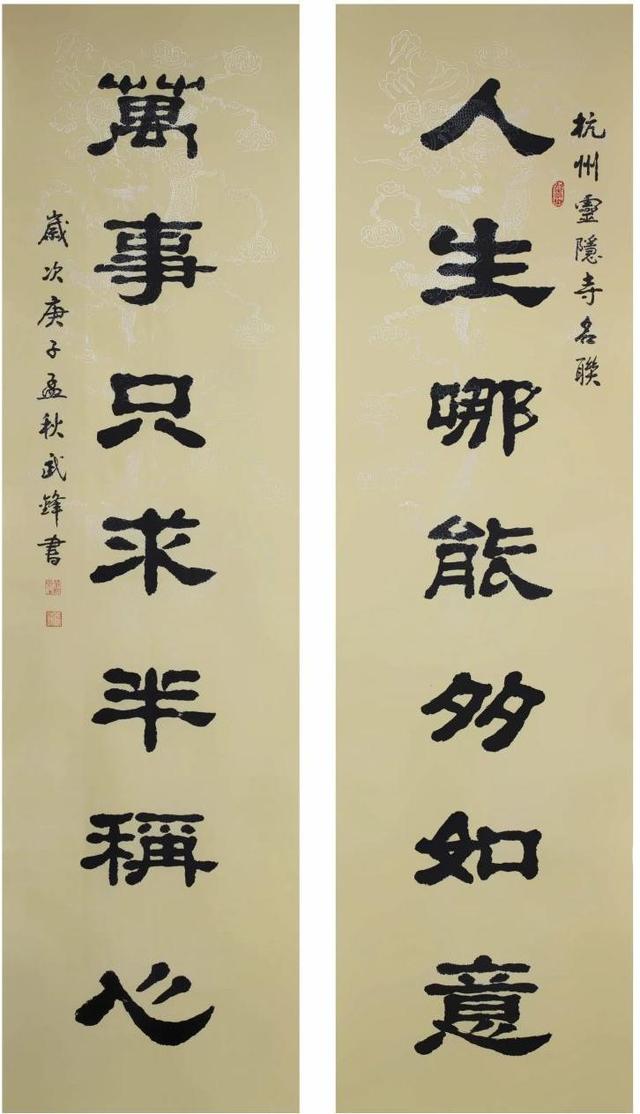 杭州靈隱寺名聯
人生哪能多如意
萬事只求半稱心
歲次庚子孟秋武鋒書